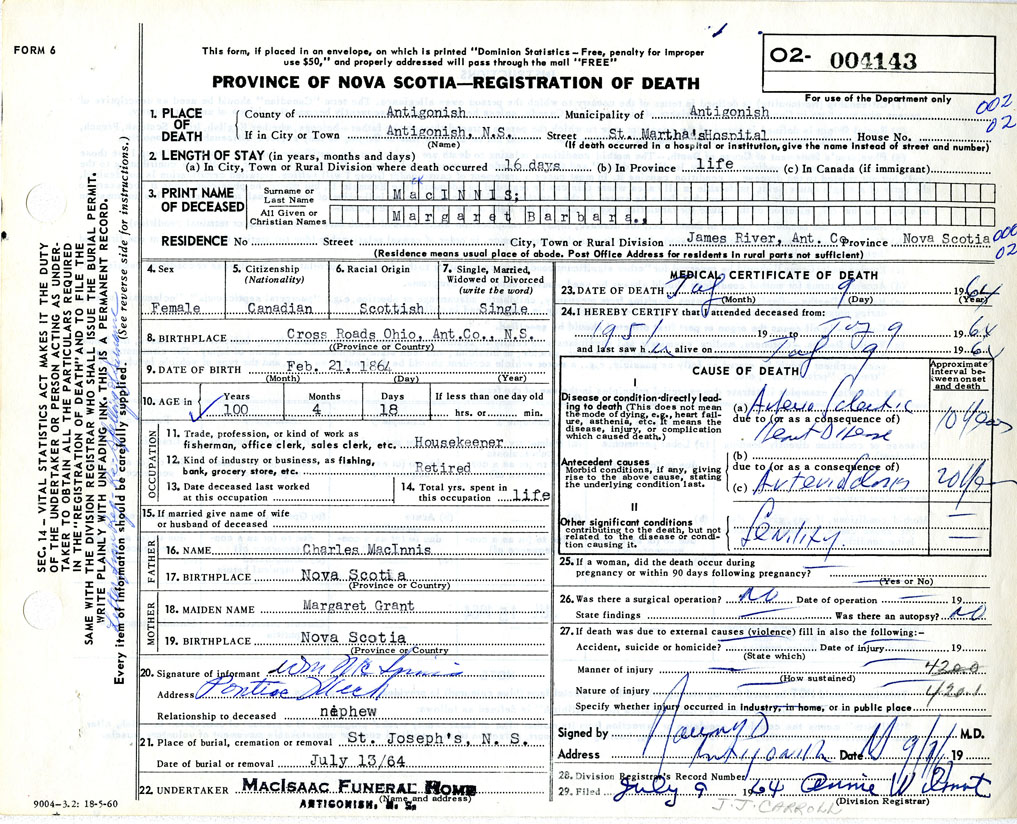 FORM 6
This form, if placed in an envelope, on which is printed "Dominion Statistics – Free, penalty for improper
use $50," and properly addressed will pass through the mail "FREE"
PROVINCE OF NOVA SCOTIA—REGISTRATION OF DEATH
02- 004143
For use of the Department only
002
02
1. PLACE OF DEATH { County of Antigonish Municipality of Antigonish
If in City or Town Antigonish, N.S. Street St. Martha's Hospital House No.
(Name) (If death occurred in a hospital or institution, give the name instead of street and number)
2. LENGTH OF STAY (in years, months and days)
(a) In City, Town or Rural Division where death occurred 16 days (b) In Province life (c) In Canada (if immigrant)
3. PRINT NAME OF DECEASED { Surname or Last Name MacINNIS;
All Given or Christian Names Margaret Barbara.,
RESIDENCE No Street City, Town or Rural Division James River, Ant. Co Province Nova Scotia
(Residence means usual place of abode. Post Office Address for residents in rural parts not sufficient)
000
02
4. Sex 5. Citizenship (Nationality) 6. Racial Origin 7. Single, Married, Widowed or Divorced (write the word)
Female Canadian Scottish Single
8. BIRTHPLACE Cross Roads Ohio, Ant.Co., N.S.
(Province or Country)
9. DATE OF BIRTH Feb. 21, 1864
(Month) (Day) (Year)
10. AGE in { Years Months Days If less than one day old
100 4 18 hrs. or min.
OCCUPATION
11. Trade, profession, or kind of work as
fisherman, office clerk, sales clerk, etc. Housekeener
12. Kind of industry or business, as fishing,
bank, grocery store, etc. Retired
13. Date deceased last worked at this occupation 14. Total yrs. spent in this occupation life
15. If married give name of wife
or husband of deceased
FATHER
16. NAME Charles MacInnis
17. BIRTHPLACE Nova Scotia
(Province or Country)
MOTHER
18. MAIDEN NAME Margaret Grant
19. BIRTHPLACE Nova Scotia
(Province or Country)
20. Signature of informant Wm McInnis
Address Pontiac Mich
Relationship to deceased nephew
21. Place of burial, cremation or removal St. Joseph's, N. S.
Date of burial or removal July 13/64
22. UNDERTAKER MACISAAC FUNERAL HOME
(Name and address)
ANTIGONISH, N. S.
9004–3.2: 18-5-60
MEDICAL CERTIFICATE OF DEATH
23. DATE OF DEATH July 9 1964
(Month) (Day) (Year)
24. I HEREBY CERTIFY that I attended deceased from:
1951 19 to July 9 1964
and last saw her alive on July 9 1964
CAUSE OF DEATH Approximate interval between onset and death
I
Disease or condition directly leading to death (This does not mean the mode of dying, e.g., heart failure, asthenia, etc. It means the disease, injury, or complication which caused death.)
(a) Arterio Sclerotic
due to (or as a consequence of)
Heart Disease
10 years
Antecedent causes
Morbid conditions, if any, giving rise to the above cause, stating the underlying condition last.
(b)
due to (or as a consequence of)
(c) Arteriosclerosis
II
Other significant conditions
contributing to the death, but not related to the disease or condition causing it.
Senility.
25. If a woman, did the death occur during
pregnancy or within 90 days following pregnancy?
(Yes or No)
26. Was there a surgical operation? No Date of operation 19
State findings Was there an autopsy? No
27. If death was due to external causes (violence) fill in also the following:–
Accident, suicide or homicide? Date of Injury 19
(State which)
Manner of injury 4200
(How sustained)
Nature of injury 420.1
Specify whether injury occurred in industry, in home, or in public place
Signed by M.D.
Address Antigonish Date 19
28. Division Registrar's Record Number
29. Filed July 9 1964
(Division Registrar)
J.J. CARROLL
SEC. 14 – VITAL STATISTICS ACT MAKES IT THE DUTY
OF THE UNDERTAKER OR PERSON ACTING AS UNDERTAKER TO OBTAIN ALL THE PARTICULARS REQUIRED
IN THE "REGISTRATION OF DEATH" AND TO FILE THE
SAME WITH THE DIVISION REGISTRAR WHO SHALL ISSUE THE BURIAL PERMIT.
WRITE PLAINLY WITH UNFADING INK. THIS IS A PERMANENT RECORD.
Every item of information should be carefully supplied. (See reverse side for instructions.)